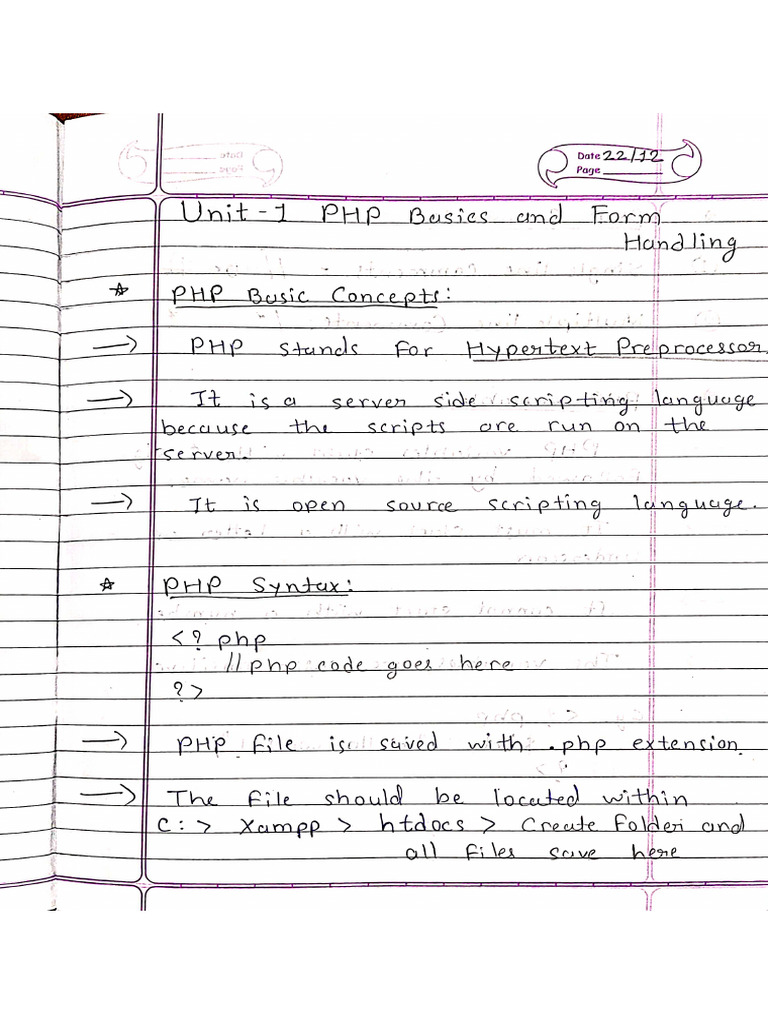 Date 22/12
Page
Unit-1 PHP Basics and Form
Handling
☆ PHP Basic Concepts:
→ PHP stands for Hypertext Preprocessor.
→ It is a server side scripting language
because the scripts are run on the
server.
→ It is open source scripting language.
☆ PHP Syntax:
<? php
//php code goes here
?>
→ PHP file is saved with .php extension
→ The file should be located within
C:> Xampp > htdocs > Create Folder and
all files save here